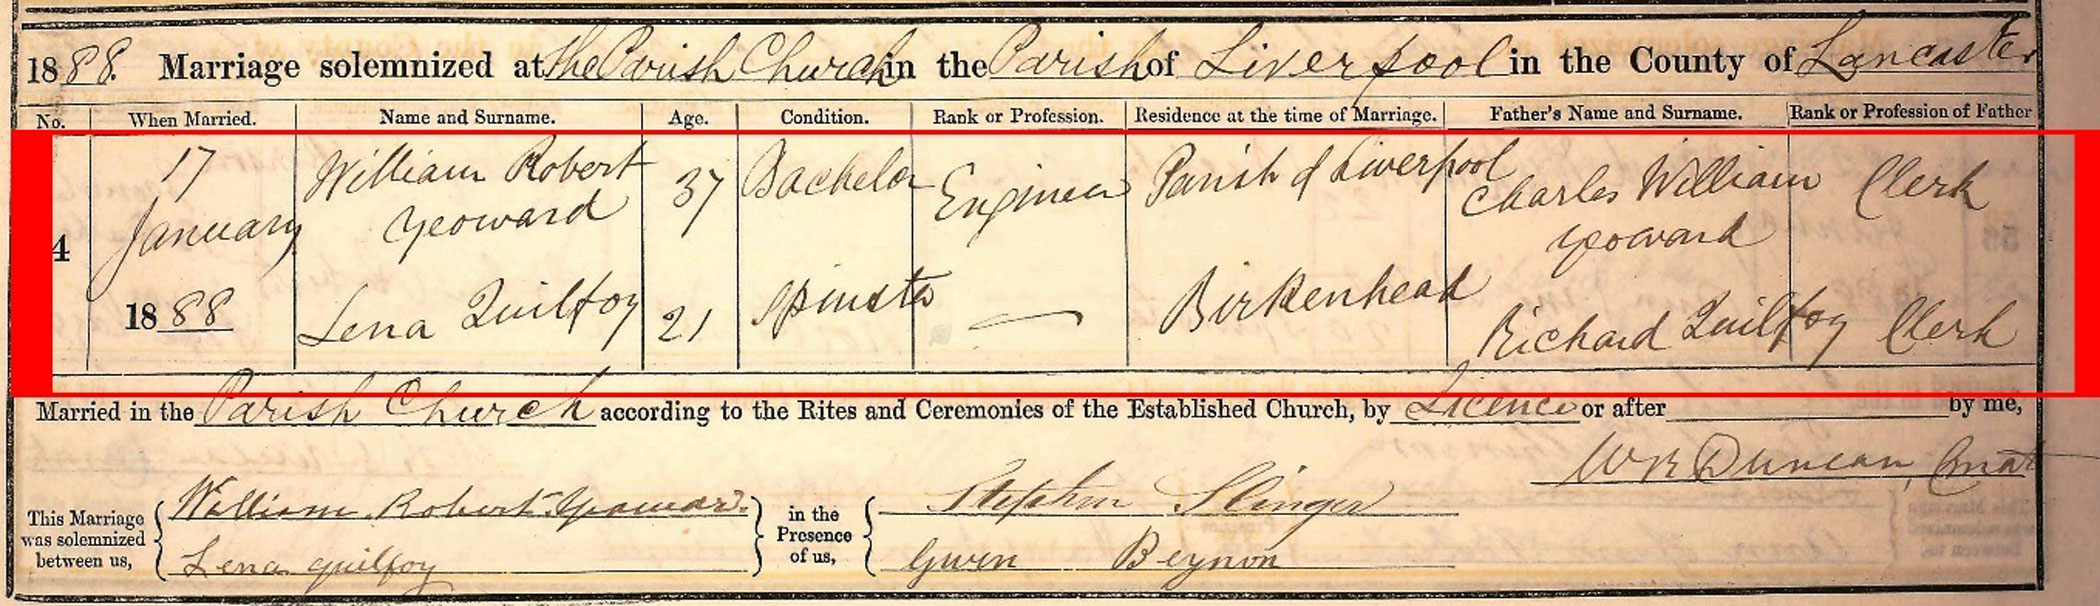 1888. Marriage solemnized at the Parish Church in the Parish of Liverpool in the County of Lancaster
No. When Married. Name and Surname. Age. Condition. Rank or Profession. Residence at the time of Marriage. Father's Name and Surname. Rank or Profession of Father
17 William Robert 37 Bachelor Engineer Parish of Liverpool Charles William Clerk
4 January Yeoward Yeoward
1888 Lena Quilfoy 21 Spinster — Birkenhead Richard Quilfoy Clerk
Married in the Parish Church according to the Rites and Ceremonies of the Established Church, by Licence or after by me,
W R Duncan, Curat
This Marriage was solemnized between us, William Robert Yeoward in the Presence of us, Stephen Slinger
Lena Quilfoy Gwen Beynon